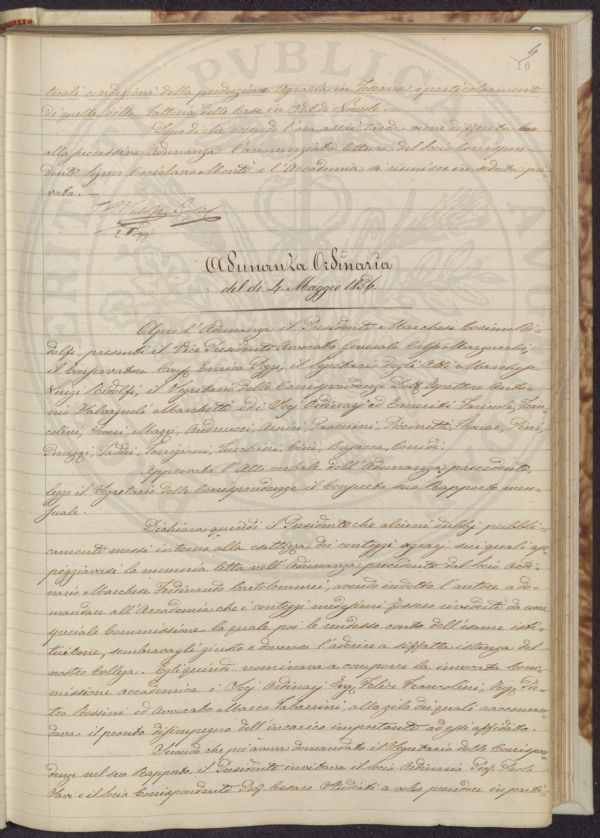 4
10
tuali condizioni della produzione Agraria in Toscana e particolarmente
di quelle della Fattoria delle Case in Val di Nievole.
Dopo di che essendo l'ora assai tarda, viene differita
alla successiva Adunanza l'annunziata lettura del Socio Corrispon-
dente Signor Monti e l'Accademia si riunisce in seduta pri-
vata.
Adunanza Ordinaria
del dì 4. Maggio 1856.
Aprì l'Adunanza il Presidente Marchese Cosimo Ri-
dolfi, presenti il Vice Presidente Avvocato Generale Celso Marzucchi,
il Conservatore Enrico Poggi, il Segretario degli Atti Marchese
Luigi Ridolfi, il Segretario delle Corrispondenze Dott. Anto-
nio Salvagnoli Marchetti ed i Socj Ordinarj ed Emeriti
Mazzi, Andreucci,
Taddei,
Approvato l'Atto verbale dell'Adunanza precedente,
legge il Segretario delle Corrispondenze il consueto suo Rapporto men-
suale.
Dichiara quindi il Presidente che alcuni dubbj pubbli-
camente mossi intorno alla esattezza dei conteggi agrarj sui quali ap-
poggiavasi la memoria letta nell'Adunanza precedente dal Socio Ordi-
nario Marchese Ferdinando Bartolommei, avendo indotto l'autore a do-
mandare all'Accademia che i conteggi medesimi fossero riveduti da una
speciale Commissione la quale poi le rendesse conto dell'esame isti-
tuitone, sembravagli giusto e doveroso l'aderire a siffatta istanza del
nostro Collega. Egli quindi nominava a comporre la invocata Com-
missione accademica i Socj Ordinarj Ing. Felice Francolini, Pie-
tro Rossini ed Avvocato Marco Tabarrini, allo zelo dei quali raccoman-
dava il pronto disimpegno dell'incarico importante ad essi affidato.
che poi aveva domandato il Segretario delle Corrispon-
denze nel suo Rapporto, il Presidente invitava il Socio Ordinario Prof. Paolo
Savi e il Socio Corrispondente Prof. Cesare Studiati a voler prendere in parti-